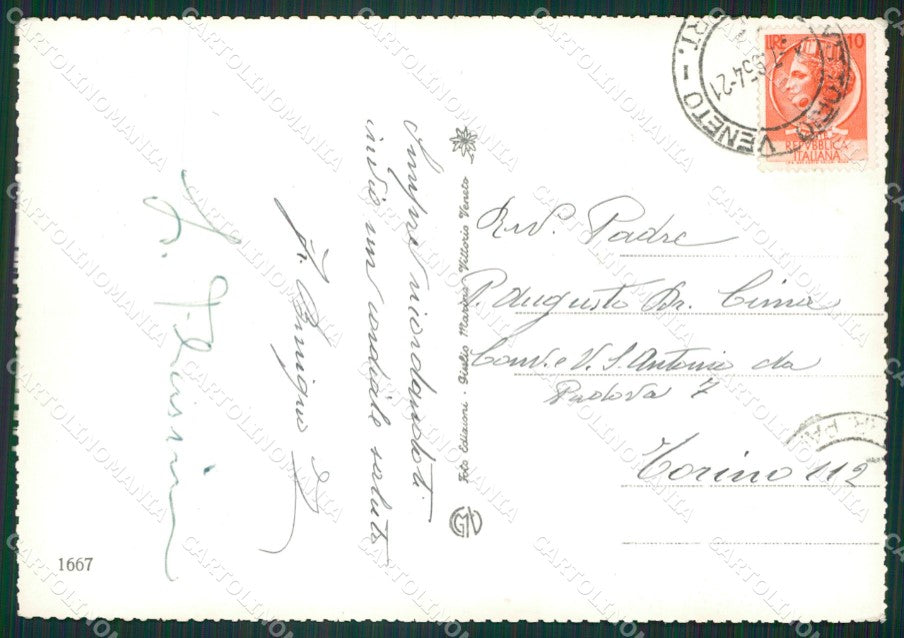 Sempre ricordandoti
invio un cordiale saluto
fr. Benigno
Foto Edizioni - Giulio Marino Vittorio Veneto
GMV
1667
LIRE 10
REPVBBLICA
ITALIANA
VITTORIO VENETO
954-21
Rev. Padre
P. Augusto Br. Cima
Conv. V. S. Antonio da
Padova 7
Torino 112
CARTOLINOMANIA